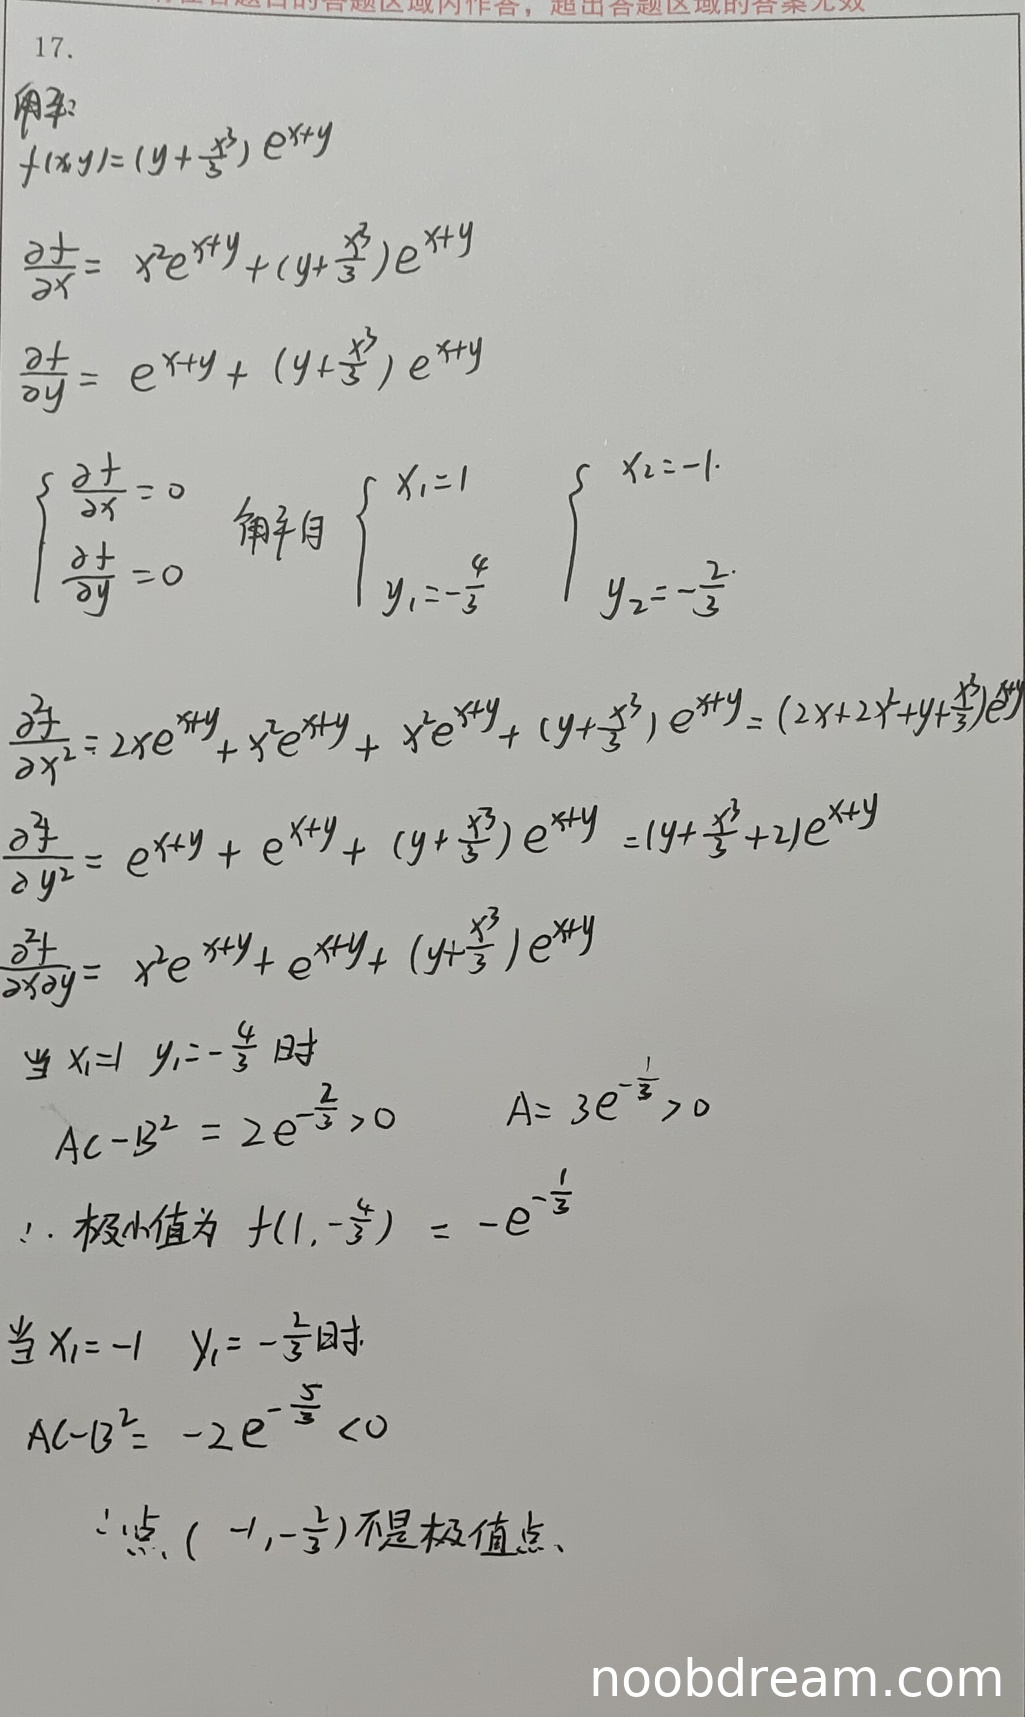 答题区域内作答，超出答题区域的答案无效
17.
解:
f(x,y)=(y+x³/3)e^{x+y}
∂f/∂x = x²e^{x+y}+(y+x³/3)e^{x+y}
∂f/∂y = e^{x+y}+(y+x³/3)e^{x+y}
{∂f/∂x=0 ∂f/∂y=0 解得 {x₁=1 y₁=-4/3 {x₂=-1. y₂=-2/3.
∂²f/∂x² = 2xe^{x+y}+x²e^{x+y}+x²e^{x+y}+(y+x³/3)e^{x+y}=(2x+2x²+y+x³/3)e^{x+y}
∂²f/∂y² = e^{x+y}+e^{x+y}+(y+x³/3)e^{x+y}=(y+x³/3+2)e^{x+y}
∂²f/∂x∂y = x²e^{x+y}+e^{x+y}+(y+x³/3)e^{x+y}
当 x₁=1 y₁=-4/3 时
AC-B² = 2e^{-2/3}>0 A=3e^{-1/3}>0
∴极小值为 f(1,-4/3) = -e^{-1/3}
当 x₁=-1 y₁=-2/3时.
AC-B²= -2e^{-5/3}<0
∴点(-1,-2/3)不是极值点、
noobdream.com